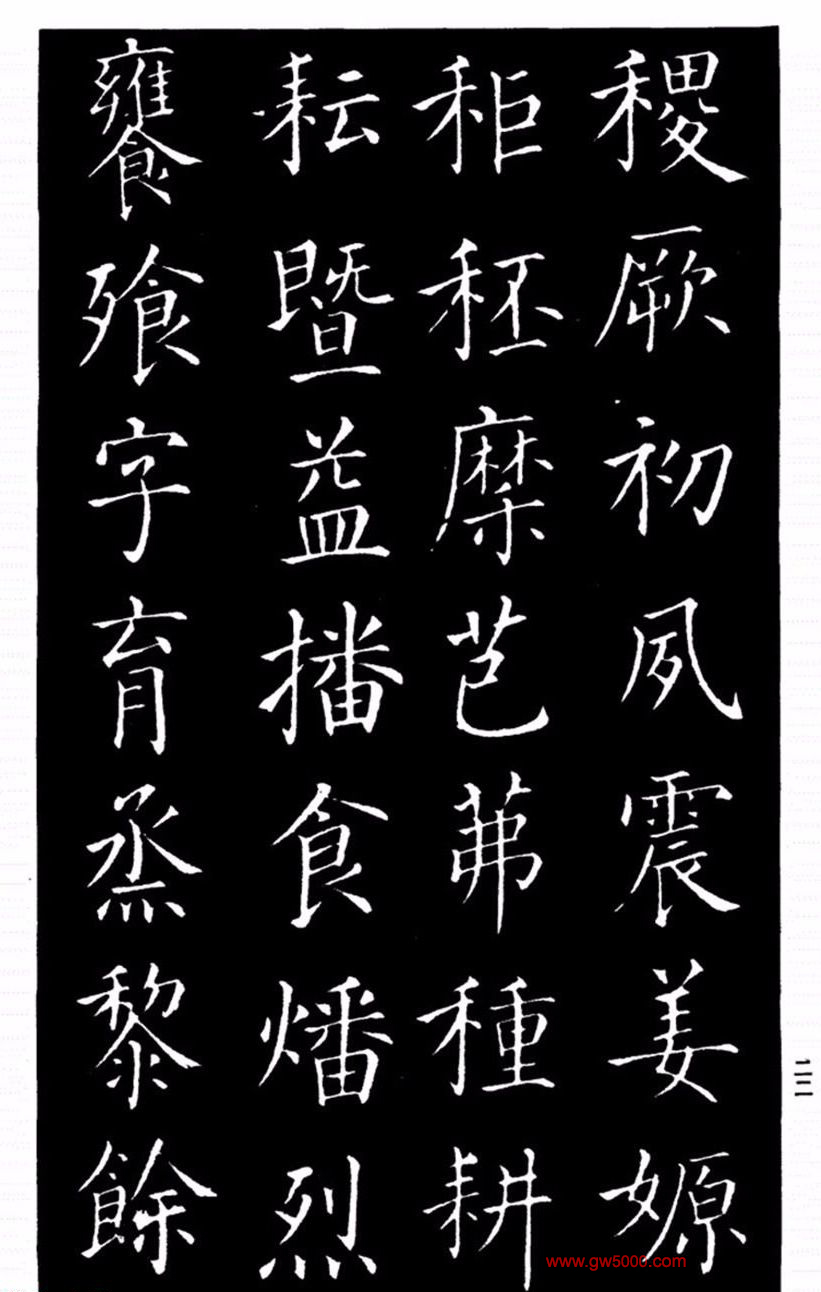 稷厥初夙震姜嫄
秬秠穈芑茀種耕
耘暨益播食燔烈
饔飧字育烝黎餘
二三
www.gw5000.com